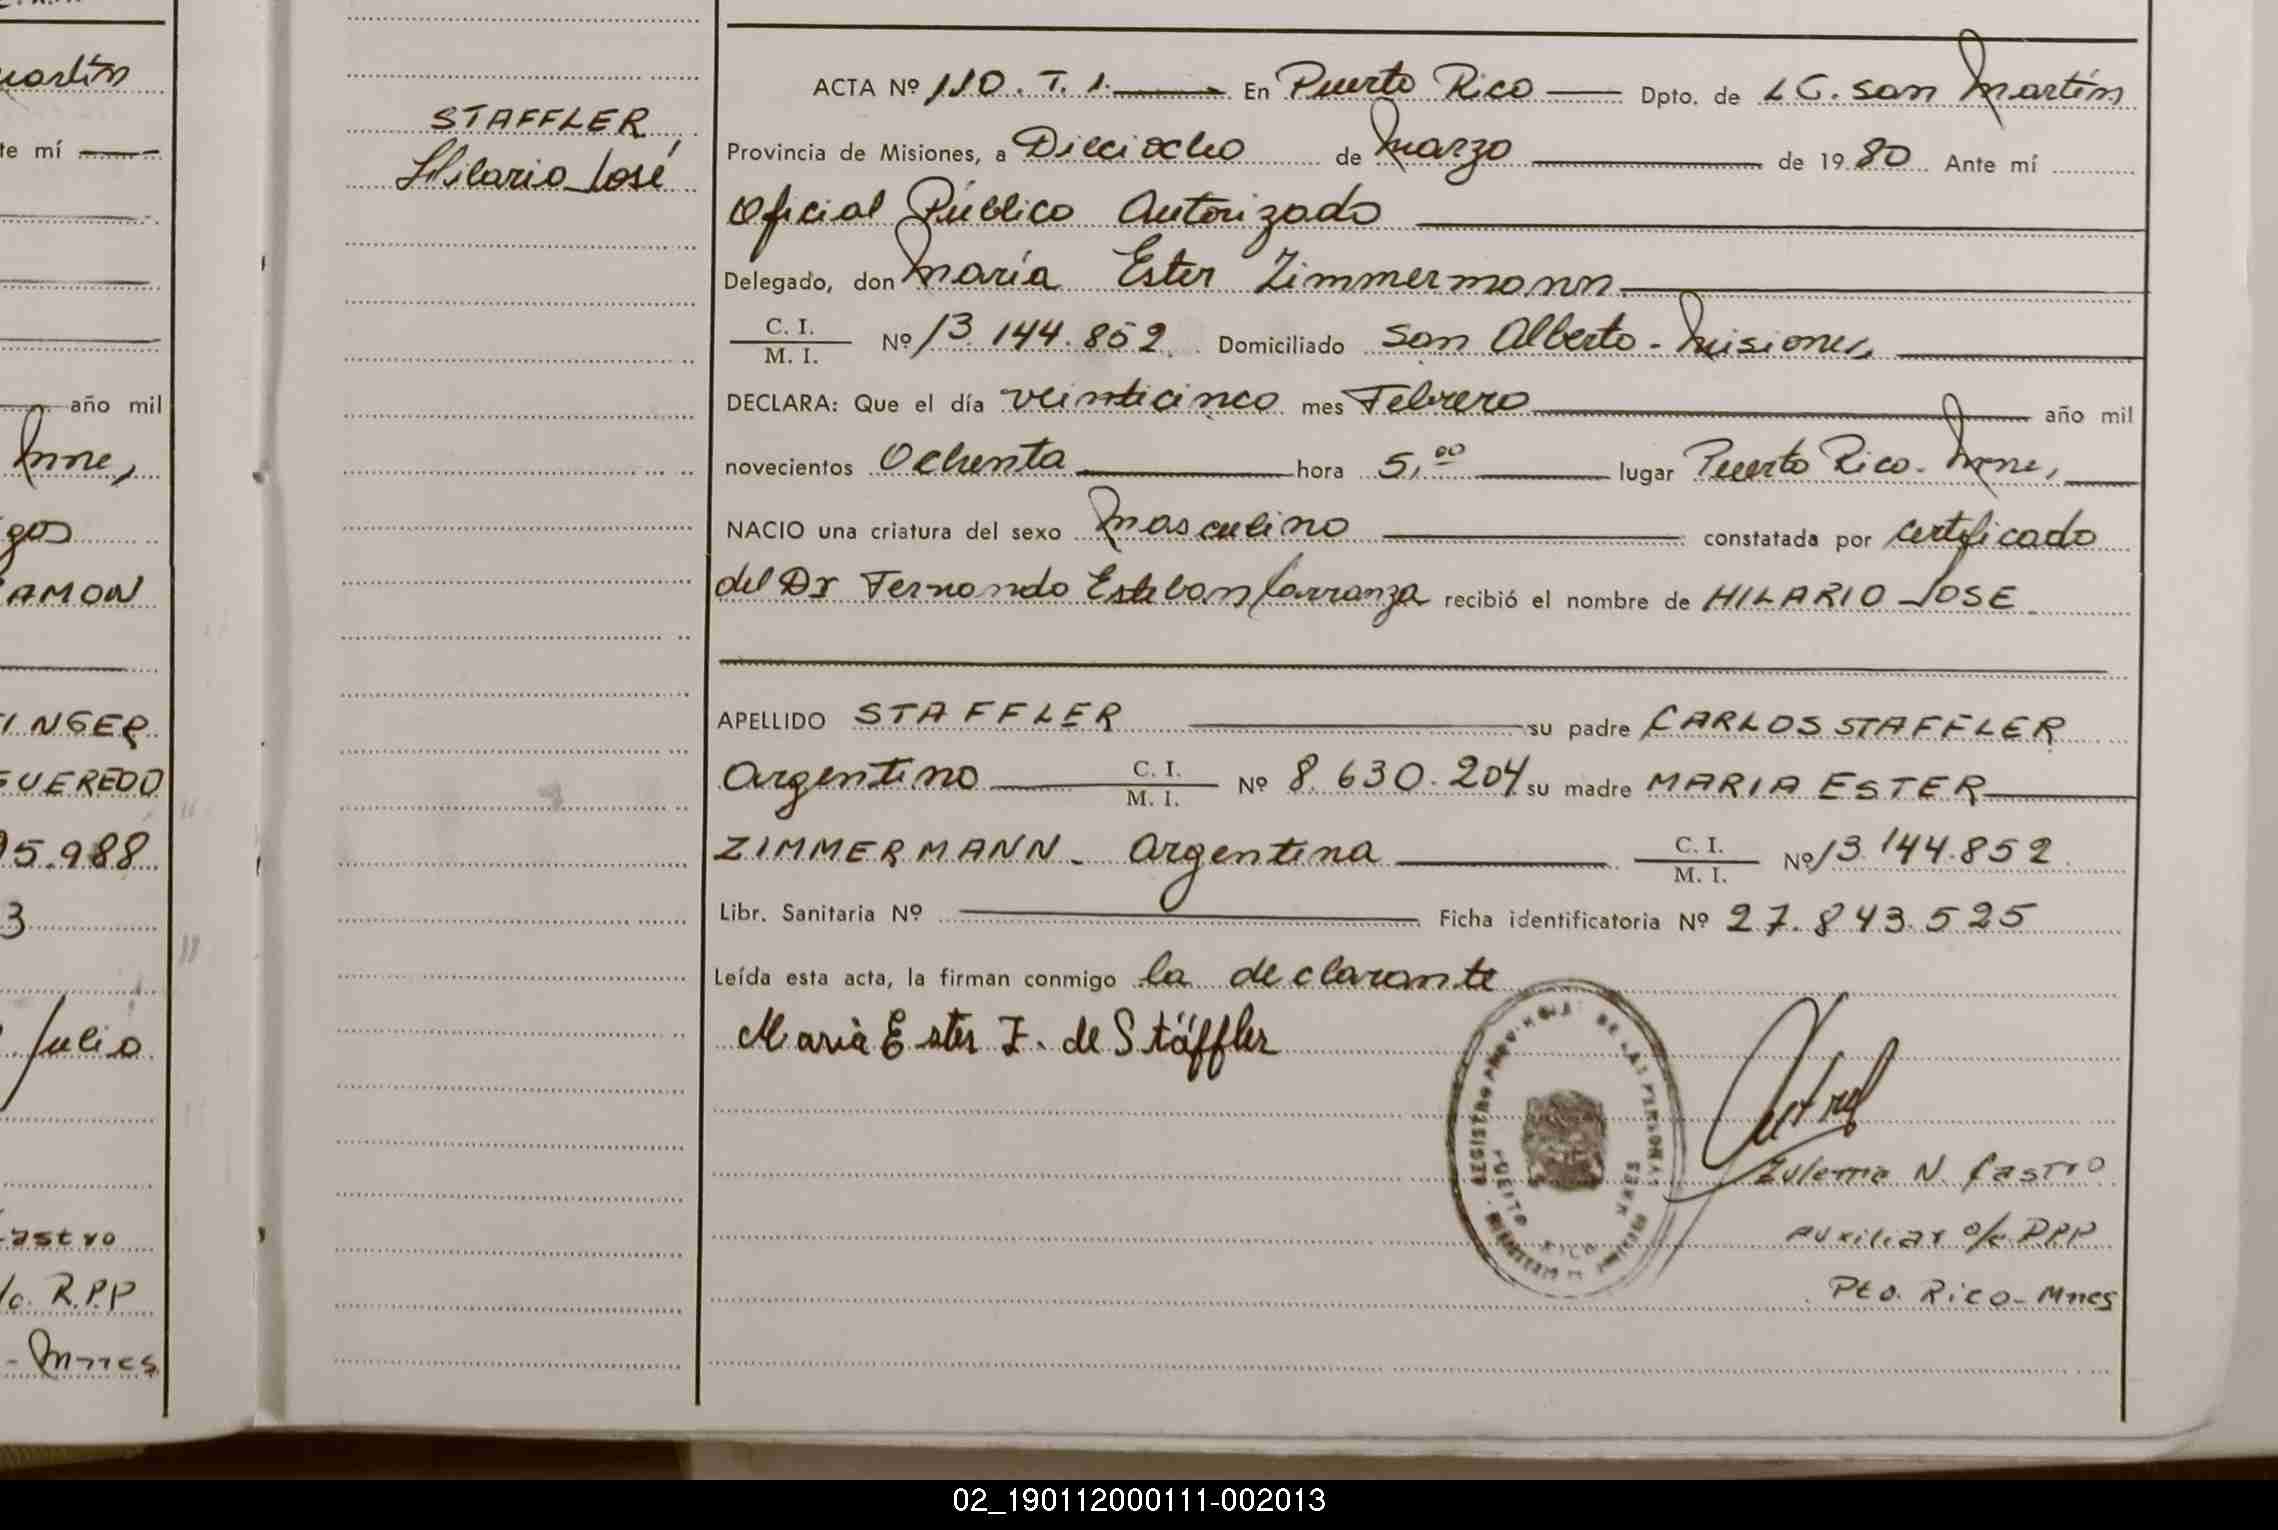 artín
te mí
año mil
Mne,
gos
AMON
INGER
GUEREDO
95.988
3
Julio
Castro
/c. R.P.P
- Mnes
STAFFLER,
Hilario José
ACTA Nº 110. T. 1. En Puerto Rico Dpto. de L G. San Martín
Provincia de Misiones, a Dieciocho de Marzo de 19 80 Ante mí
Oficial Público Autorizado
Delegado, don María Ester Zimmermann
C. I. / M. I. Nº 13.144.852 Domiciliado San Alberto - Misiones,
DECLARA: Que el día veinticinco mes Febrero año mil
novecientos Ochenta hora 5,00 lugar Puerto Rico - Mne,
NACIO una criatura del sexo Masculino constatada por certificado
del Dr Fernando Esteban Carranza recibió el nombre de HILARIO JOSE
APELLIDO STAFFLER su padre CARLOS STAFFLER
Argentino C. I. / M. I. Nº 8.630.204 su madre MARIA ESTER
ZIMMERMANN - Argentina C. I. / M. I. Nº 13.144.852
Libr. Sanitaria Nº Ficha identificatoria Nº 27.843.525
Leída esta acta, la firman conmigo la declarante
Maria Ester Z. de Stäffler
REGISTRO PROVINCIAL DE LAS PERSONAS
PUERTO RICO
MNES
Zulema N. Castro
Auxiliar o/c RPP
Pto. Rico - Mnes
02_190112000111-002013